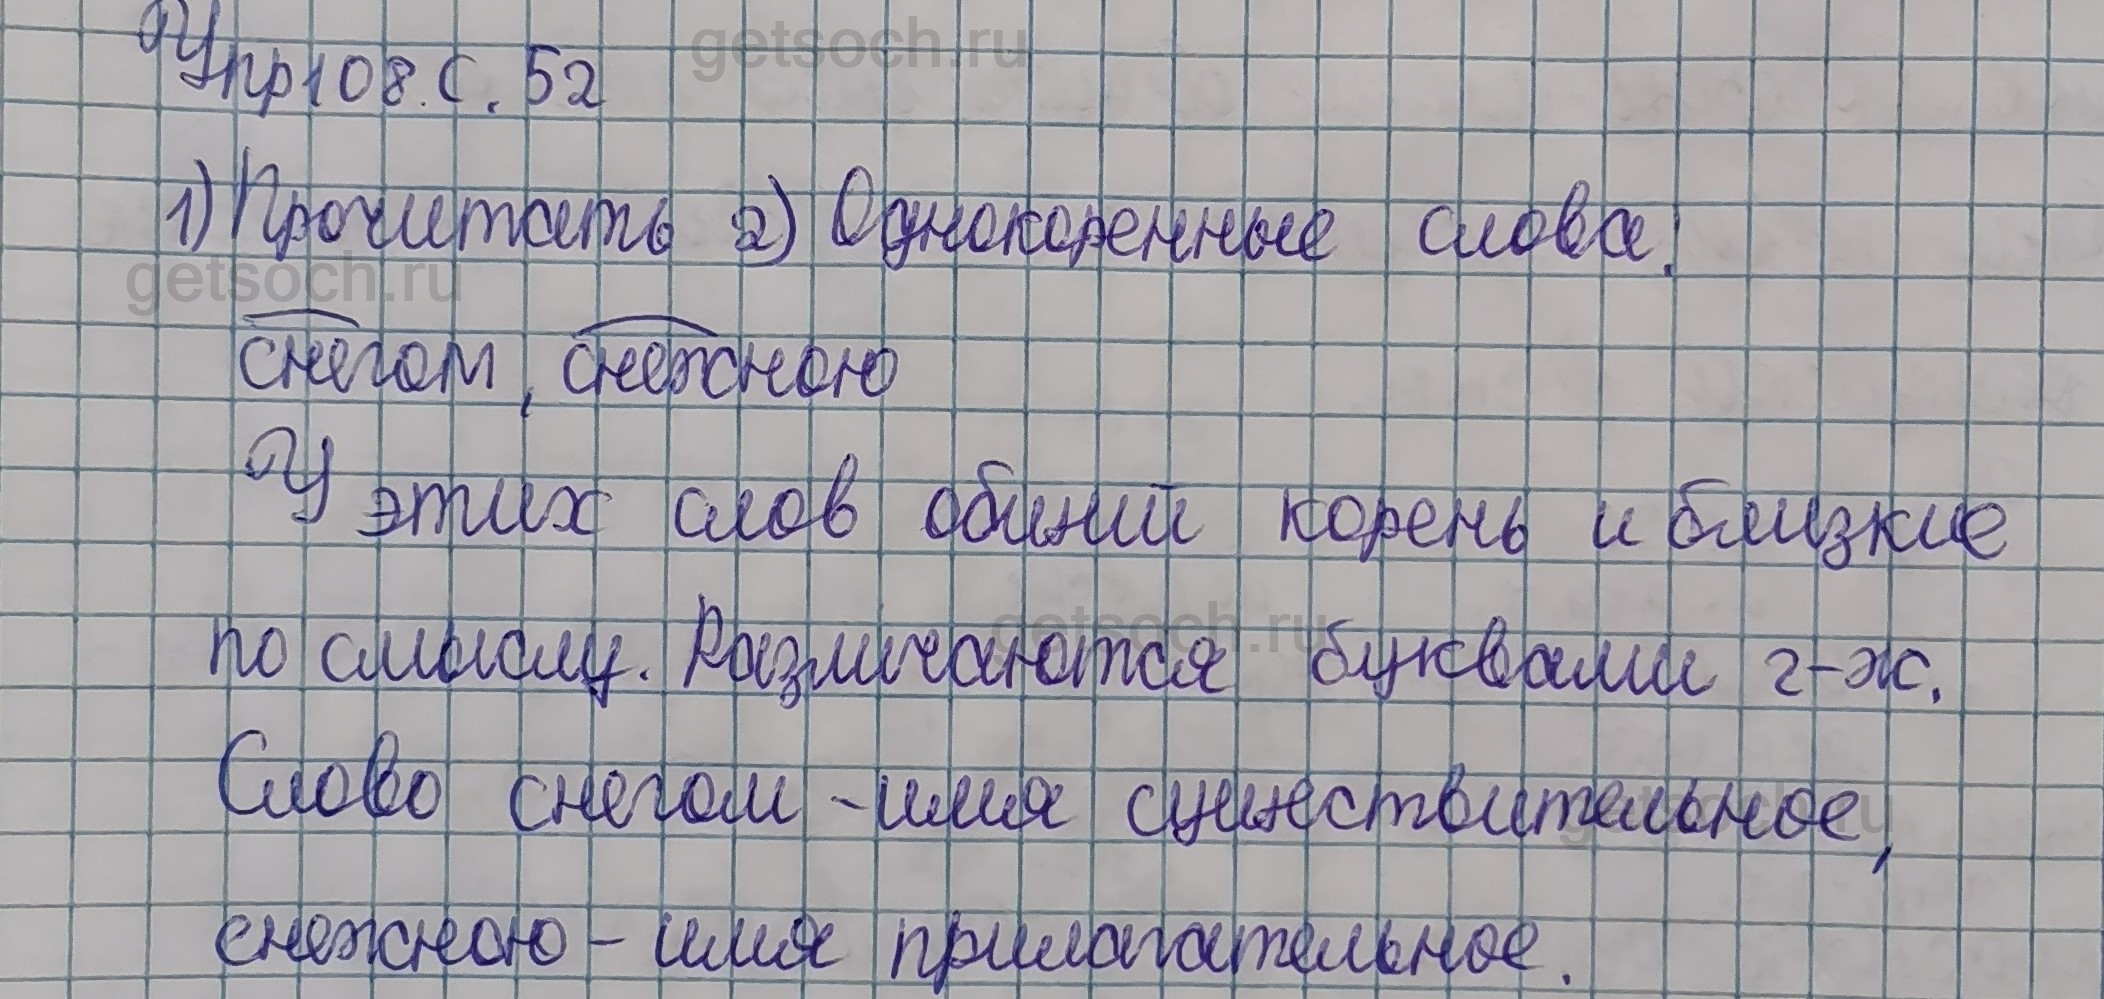 Упр108.с.52
getsoch.ru
1) Прочитать 2) Однокоренные слова:
getsoch.ru
снегом, снежною
У этих слов общий корень и близкие
getsoch.ru
по смыслу. Различаются буквами г-ж.
Слово снегом - имя существительное,
getsoch.ru
снежною - имя прилагательное.